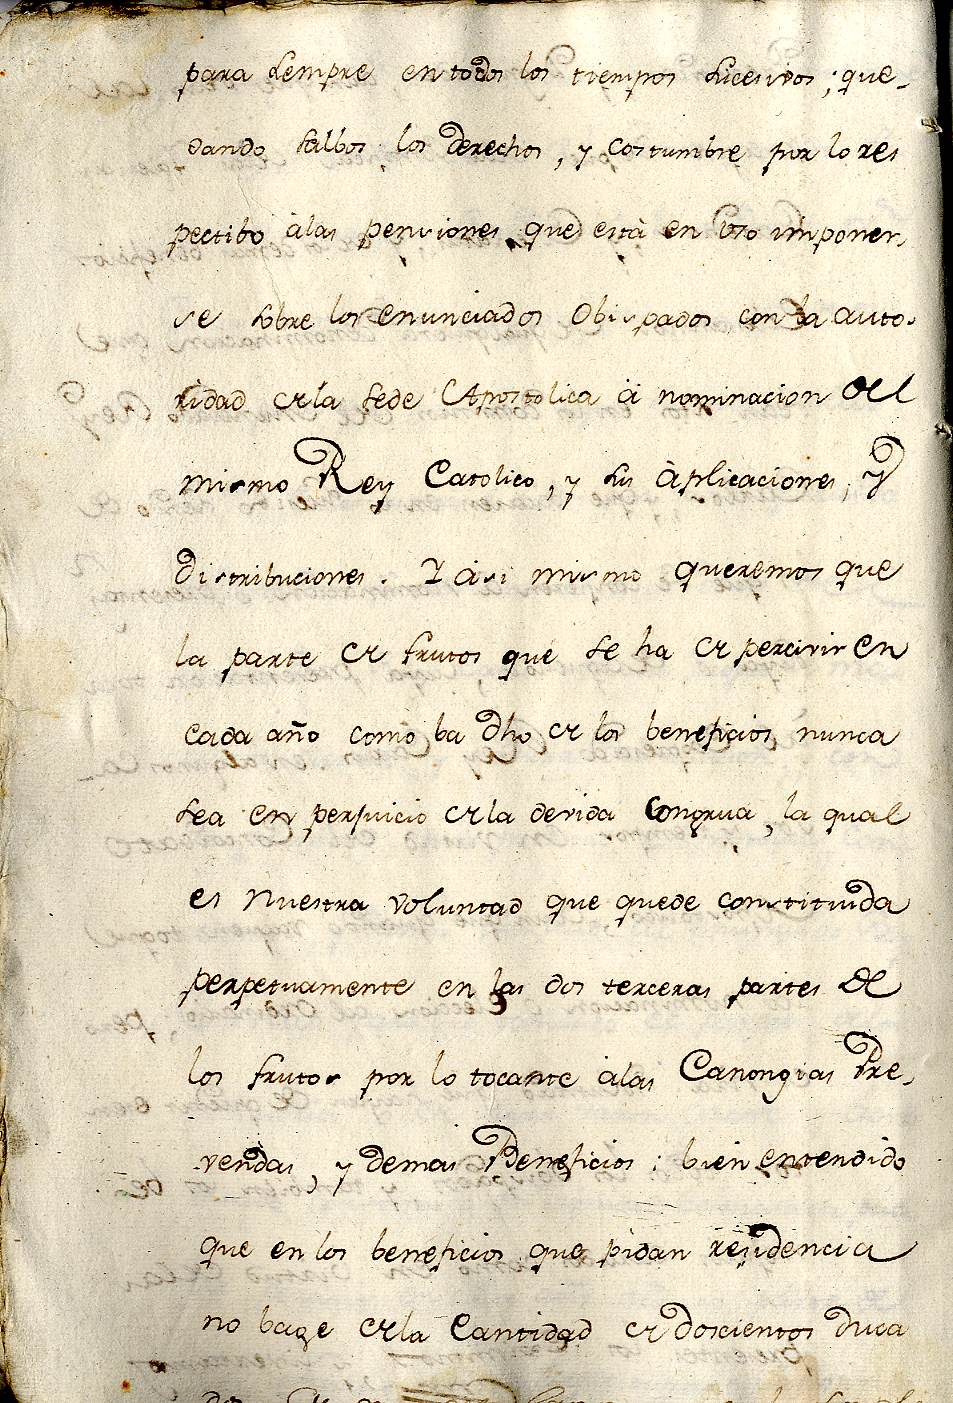 para sempre en todos los tiempos sucesivos; que-
dando salbos los derechos, y costumbre por lo res
pectibo àlas pensiones que està en uso imponer,
se sobre los enunciados Obispados con la auto-
ridad de la sede Apostolica à nominacion del
mismo Rey Catolico, y sus àplicaciones, y
distribuciones. Y asi mismo queremos que
la parte de frutos que se ha de percivir en
cada año como ba dho de los beneficios nunca
sea en perjuicio de la devida Congrua, la qual
es nuestra voluntad que quede constituida
perpetuamente en las dos terceras partes de
los frutos por lo tocante àlas Canongias Pre,
vendas, y demas Beneficios: bien entendido
que en los beneficios que pidan residencia
no bage de la Cantidad de doscientos duca